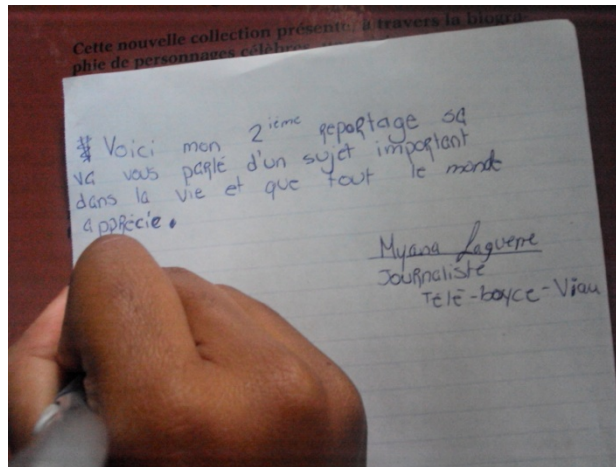 Cette nouvelle collection présente, à travers la biogra-
phie de personnages célèbres,
# Voici mon 2ième reportage sa
va vous parlé d'un sujet important
dans la vie et que tout le monde
apprécie.
Myana Laguerre
Journaliste
Télé-boyce-Viau